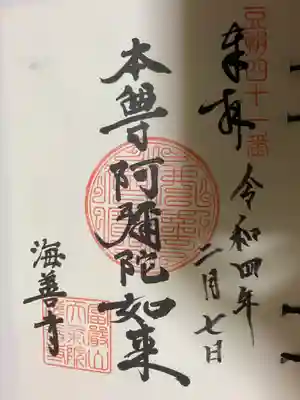 豆相四十一番
奉拝
令和四年
二月七日
本尊阿彌陀如来
海善寺